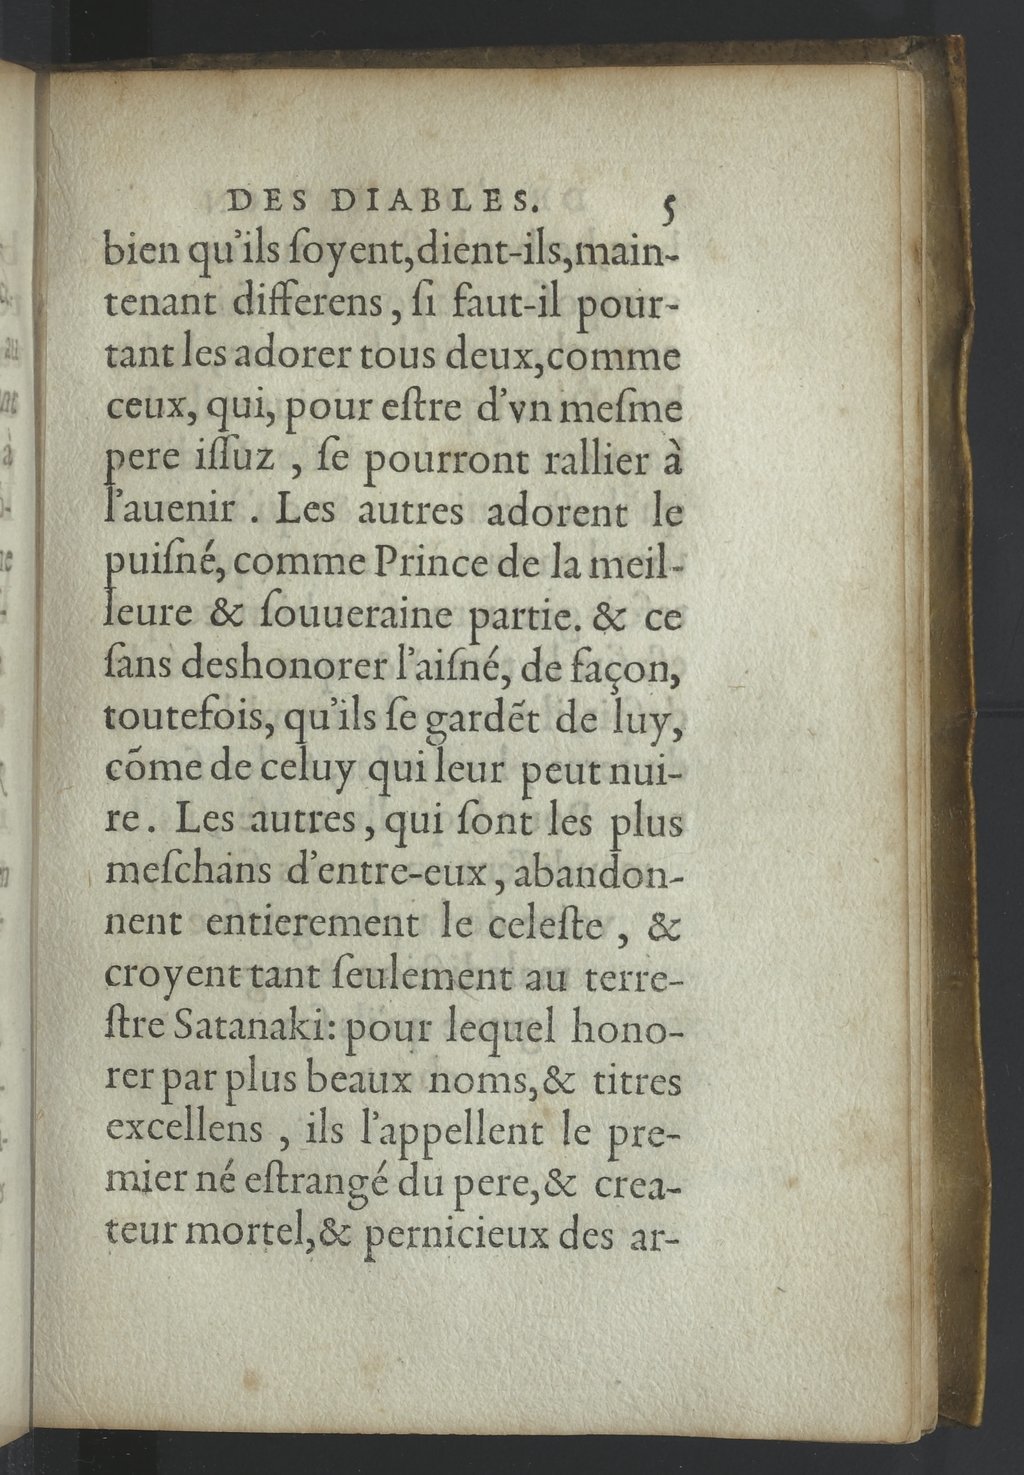 DES DIABLES. 5
bien qu'ils ſoyent,dient-ils,main-
tenant differens, ſi faut-il pour-
tant les adorer tous deux,comme
ceux, qui, pour eſtre d'vn meſme
pere iſſuz , ſe pourront rallier à
l'auenir . Les autres adorent le
puiſné, comme Prince de la meil-
leure & ſouueraine partie. & ce
ſans deshonorer l'aiſné, de façon,
toutefois, qu'ils ſe gardẽt de luy,
cõme de celuy qui leur peut nui-
re. Les autres, qui ſont les plus
meſchans d'entre-eux, abandon-
nent entierement le celeſte , &
croyent tant ſeulement au terre-
ſtre Satanaki: pour lequel hono-
rer par plus beaux noms,& titres
excellens , ils l'appellent le pre-
mier né eſtrangé du pere,& crea-
teur mortel,& pernicieux des ar-